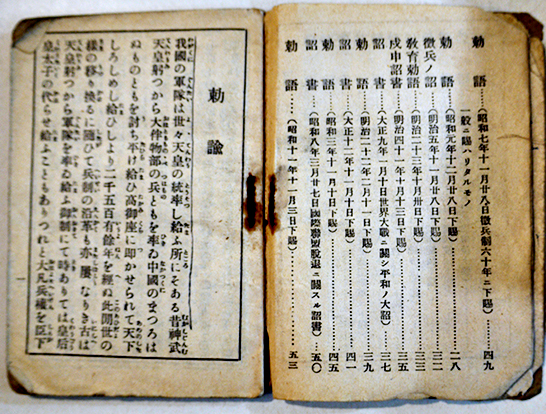 勅語……(昭和七年十一月廿八日徴兵制六十年ニ下賜)……四九
一般ニ賜ハリタルモノ
勅語……(昭和元年十二月廿八日下賜)……二八
徴兵ノ詔……(明治五年十一月廿八日下賜)……三二
教育勅語……(明治二十三年十月卅日下賜)……三三
戊申詔書……(明治四十一年十月十三日下賜)……三五
詔書……(大正九年一月十日世界大戰ニ關シ平和ノ大詔)……三七
勅語……(明治二十二年二月十一日下賜)……三九
詔書……(大正十二年十一月十日下賜)……四一
勅語……(昭和三年十一月十日下賜)……四五
詔書……(昭和八年三月廿七日國際聯盟脱退ニ關スル詔書)……五〇
勅語……(昭和十一年十一月三日下賜)……五三
勅諭
我國の軍隊は世々天皇の統率し給ふ所にそある昔神武
天皇躬つから大伴物部の兵ともを率ゐ中國のまつろは
ぬものともを討ち平け給ひ高御座に即かせられて天下
しろしめし給ひしより二千五百有餘年を經ぬ此間世の
樣の移り換るに隨ひて兵制の沿革も亦屢なりき古は
天皇躬つから軍隊を率ゐ給ふ御制にて時ありては皇后
皇太子の代らせ給ふこともありつれと大凡兵權を臣下